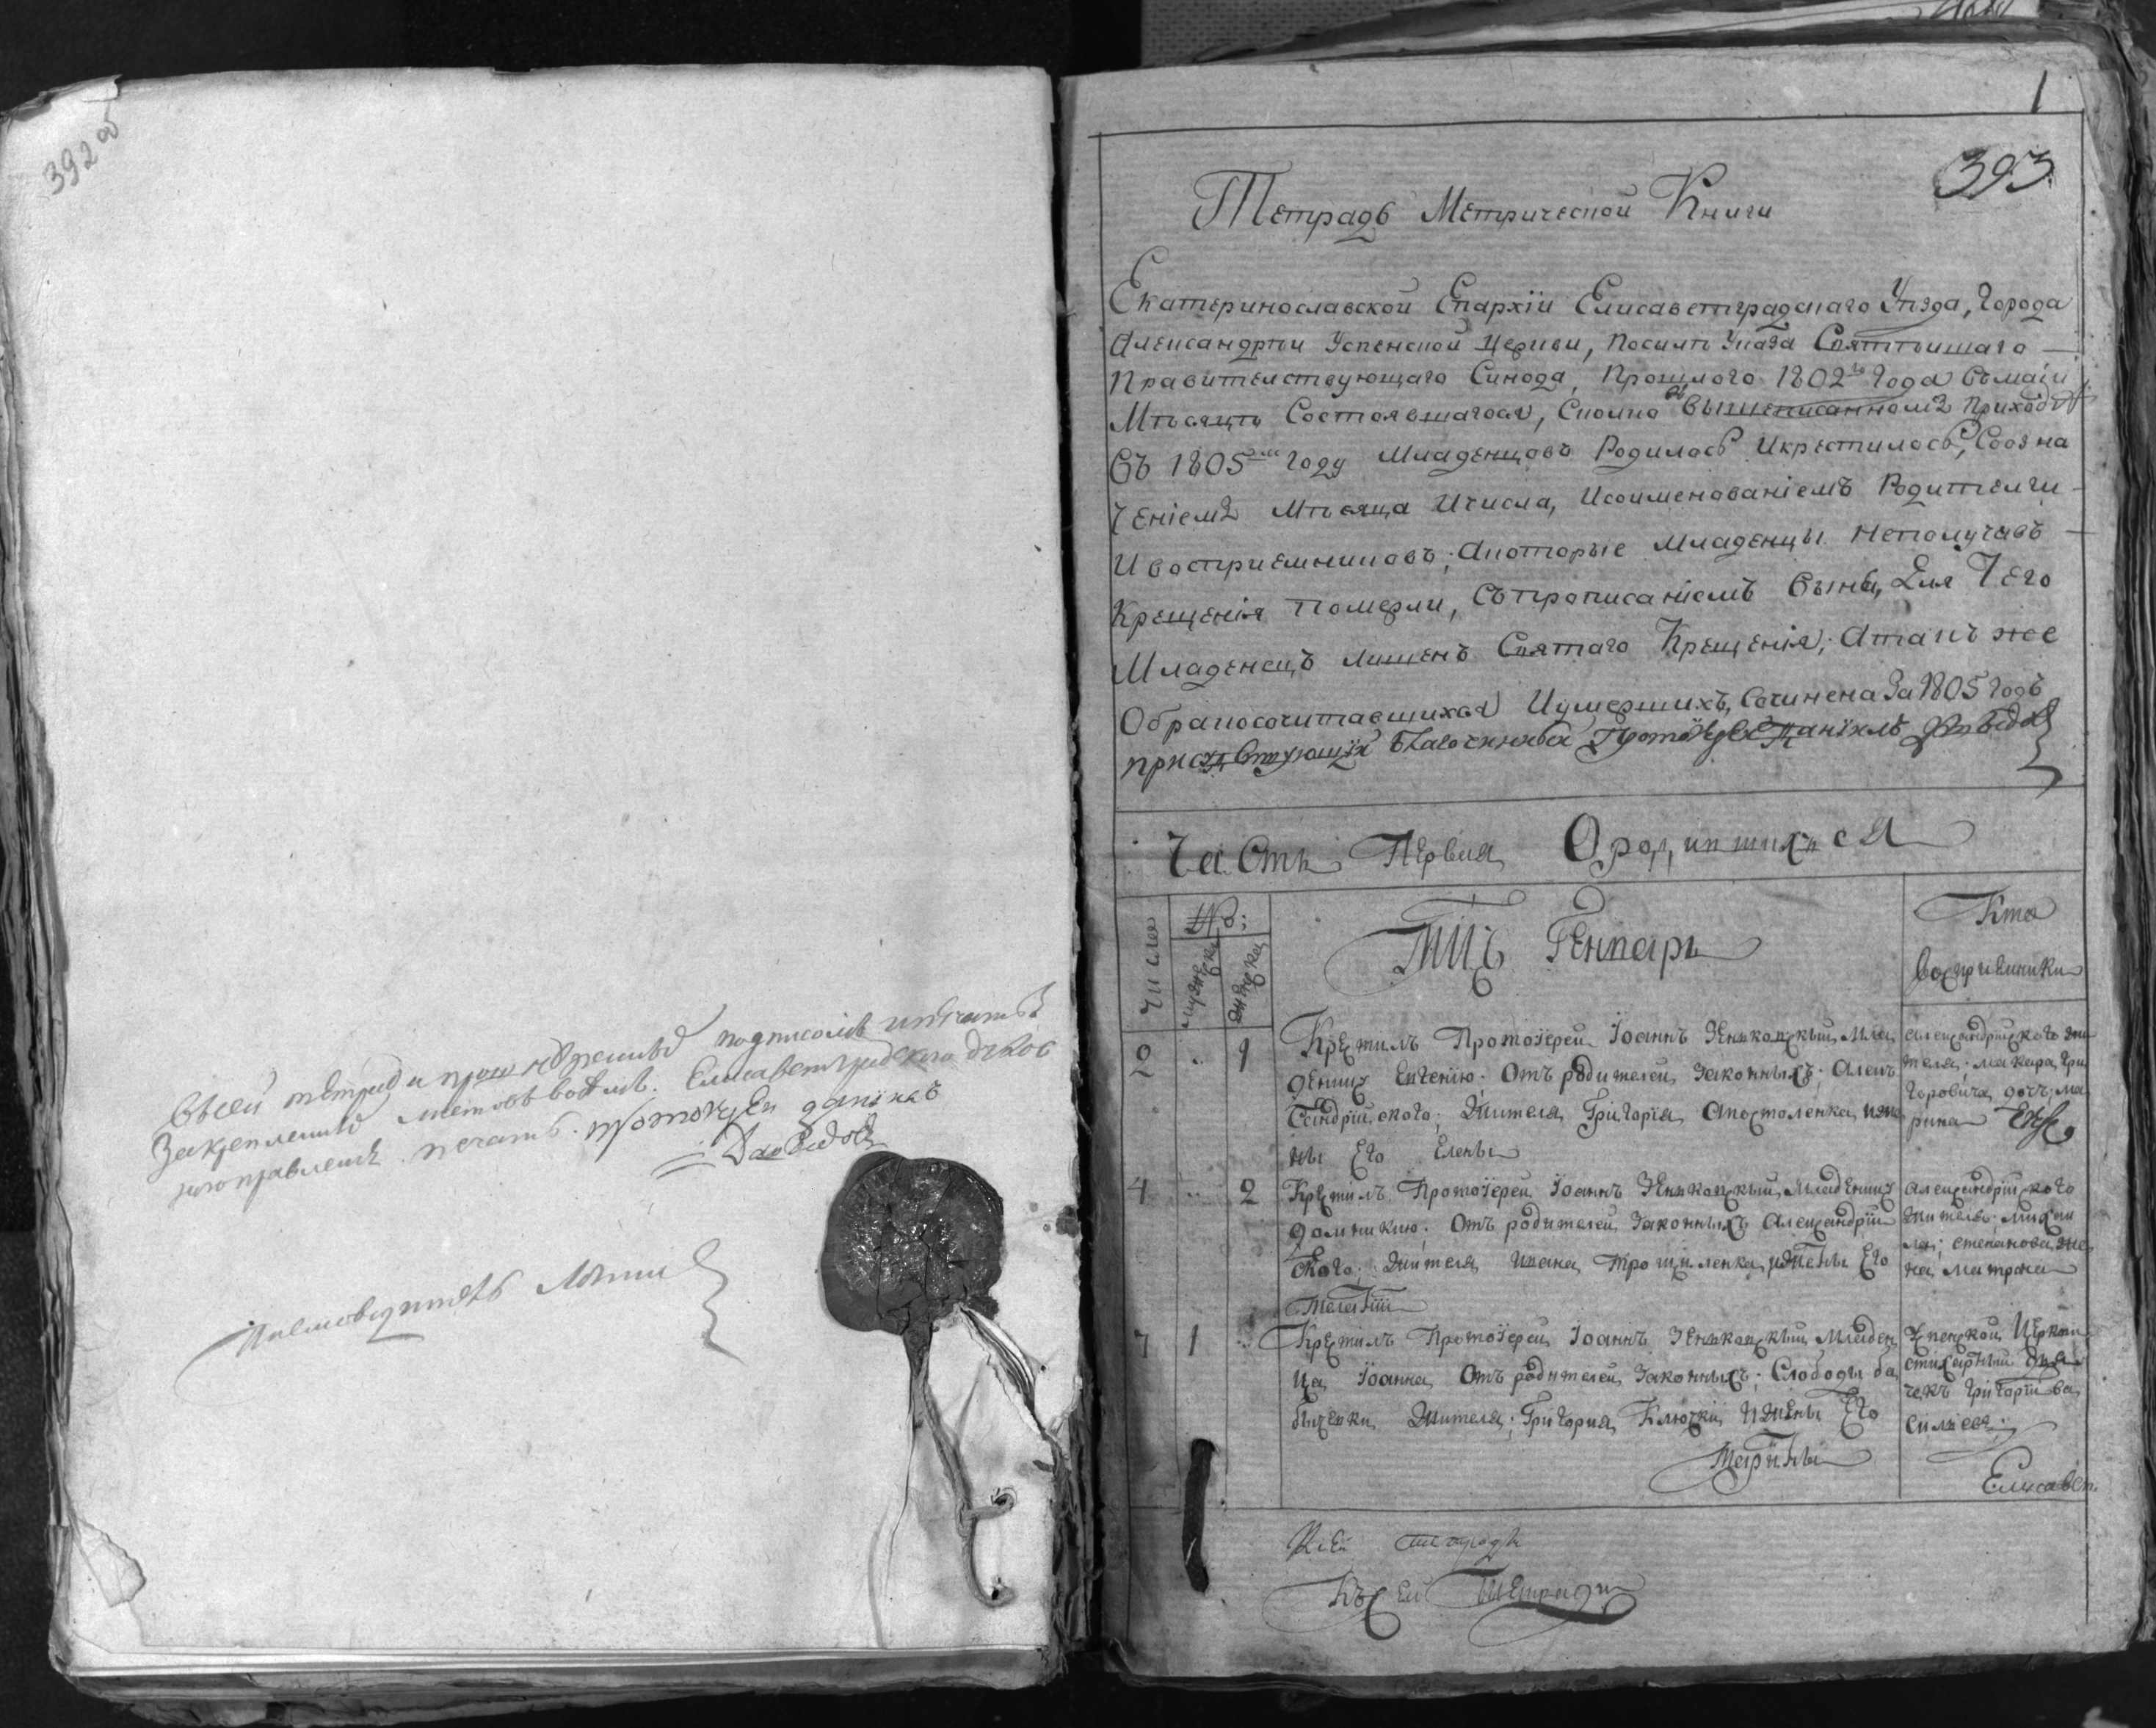 392 об
Всей тетради прошнурованой подписомъ и печатью
Закрепленной листовъ восемь. Елисаветградского духов
ного правления печать. протоиерей данїилъ
Давидовъ
1
393
Тетрадь Метрической Книги
Екатеринославской Епархіи Елисаветградскаго Уѣзда, Города
Александріи Успенской Церкви, Посилѣ Указа Святѣишаго
Правителствующаго Синода, Прошлого 1802го Года Въмаіи
Мѣсяцѣ Состоявшагося, Сколко въ Вышеписанномъ Приходѣ
Въ 1805мъ Году Младенцовъ Родилось Икрестилось, Созна
Ченіемъ Мѣсяца Ичисла, Исоименованіемъ Родителей
Ивосприемниковъ; Акоторые Младенцы Неполучивъ
Крещенія Померли, Съпрописаніемъ Вины, Для Чего
Младенецъ лишенъ Святаго Крещенія; Атакъ же
Обракосочитавшихся Иумершихъ, Сочинена За 1805 Годъ
присудствующій Благочинный Протоіерей Даніилъ Давидовъ
Часть Первая Ородившихся
Число
No:
мужеска
женска
Мцъ Генварь
Кто
восприемники
2 " 1 Крестилъ Протоіерей Іоаннъ Зеньковскый, Мла
деницу Евгенію. Отъ родителей Законныхъ; Алек
сандрійского; Жителя Григорія Апостоленка, иже
ны Его Елены
Александрійского жи
теля; макара Гри
горовича дочь ма
рина
4 " 2 Крестилъ Протоіерей Іоаннъ Зеньковскый, Младеницу
домникию; Отъ родителей Законныхъ Александрій
ского; Жителя Ивана Трощиленка, иЖены Его
Мелатїи
Александрійского
Жителя; михаи
ла; степанова же
на, матрона
7 1 " Крестилъ Протоіерей Іоаннъ Зеньковскый, Младен
ца Іоанна Отъ родителей Законныхъ; Слободы ба
Жителя; Григория Ключки, ижены Его
Марины
Успенской Церкви
стихарный дья
чекъ Григорій Ва
силиевъ;
Елисавет.
Ксей тетради
Къ сей Тетради